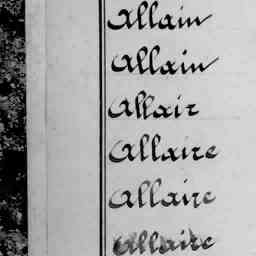 Allain
Allain
Allair
Allaire
Allaire
Allaire